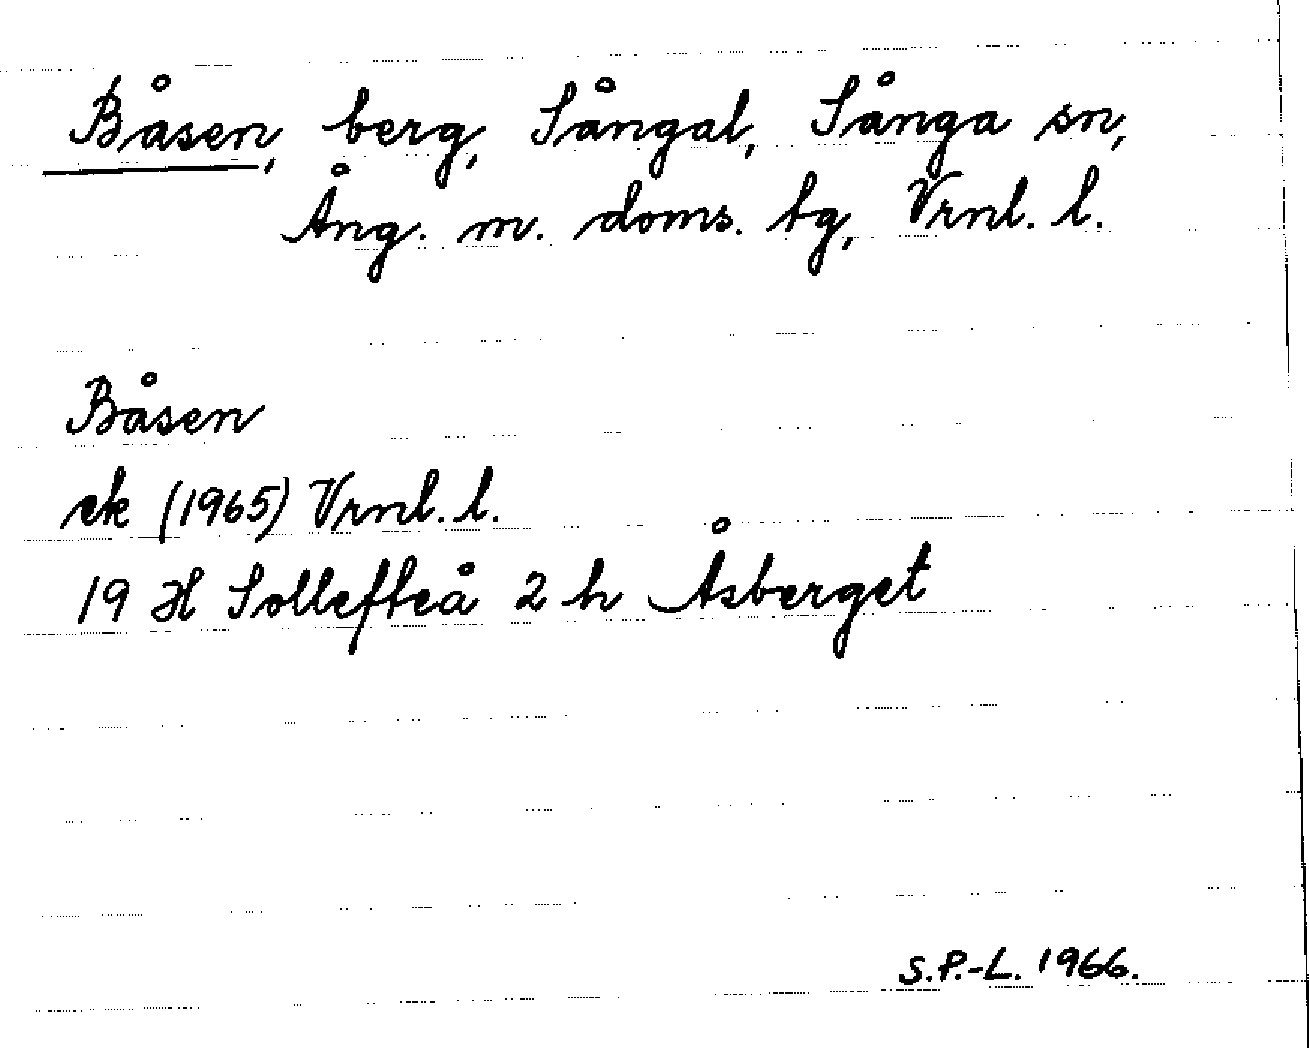 Båsen, berg, Sångal, Sånga sn,
Ång. m. doms. tg, Vrnl. l.
Båsen
ek (1965) Vrnl. l.
19 H Sollefteå 2 h Åsberget
S.P.-L. 1966.